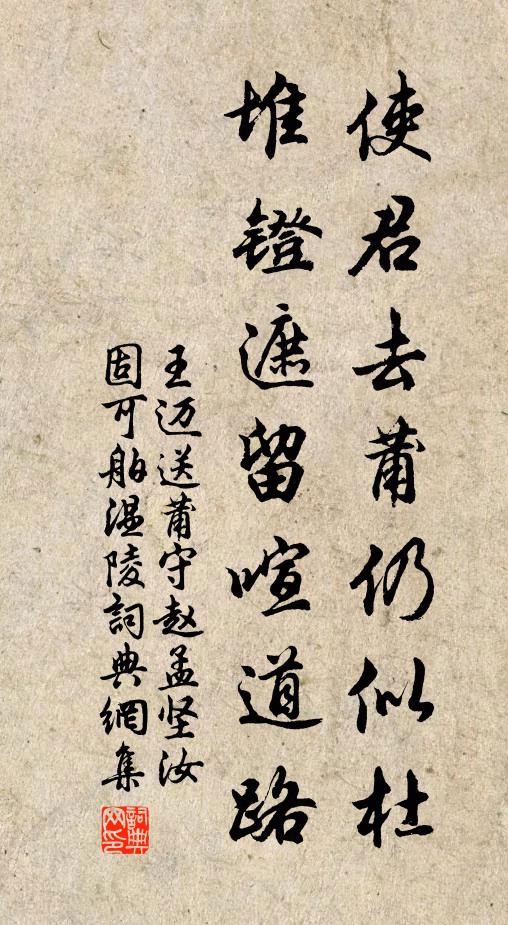 使君去莆仍似杜
堆镫遮留喧道路
王迈送莆守赵孟坚汝
固可舶温陵詞典網集
詞典网印